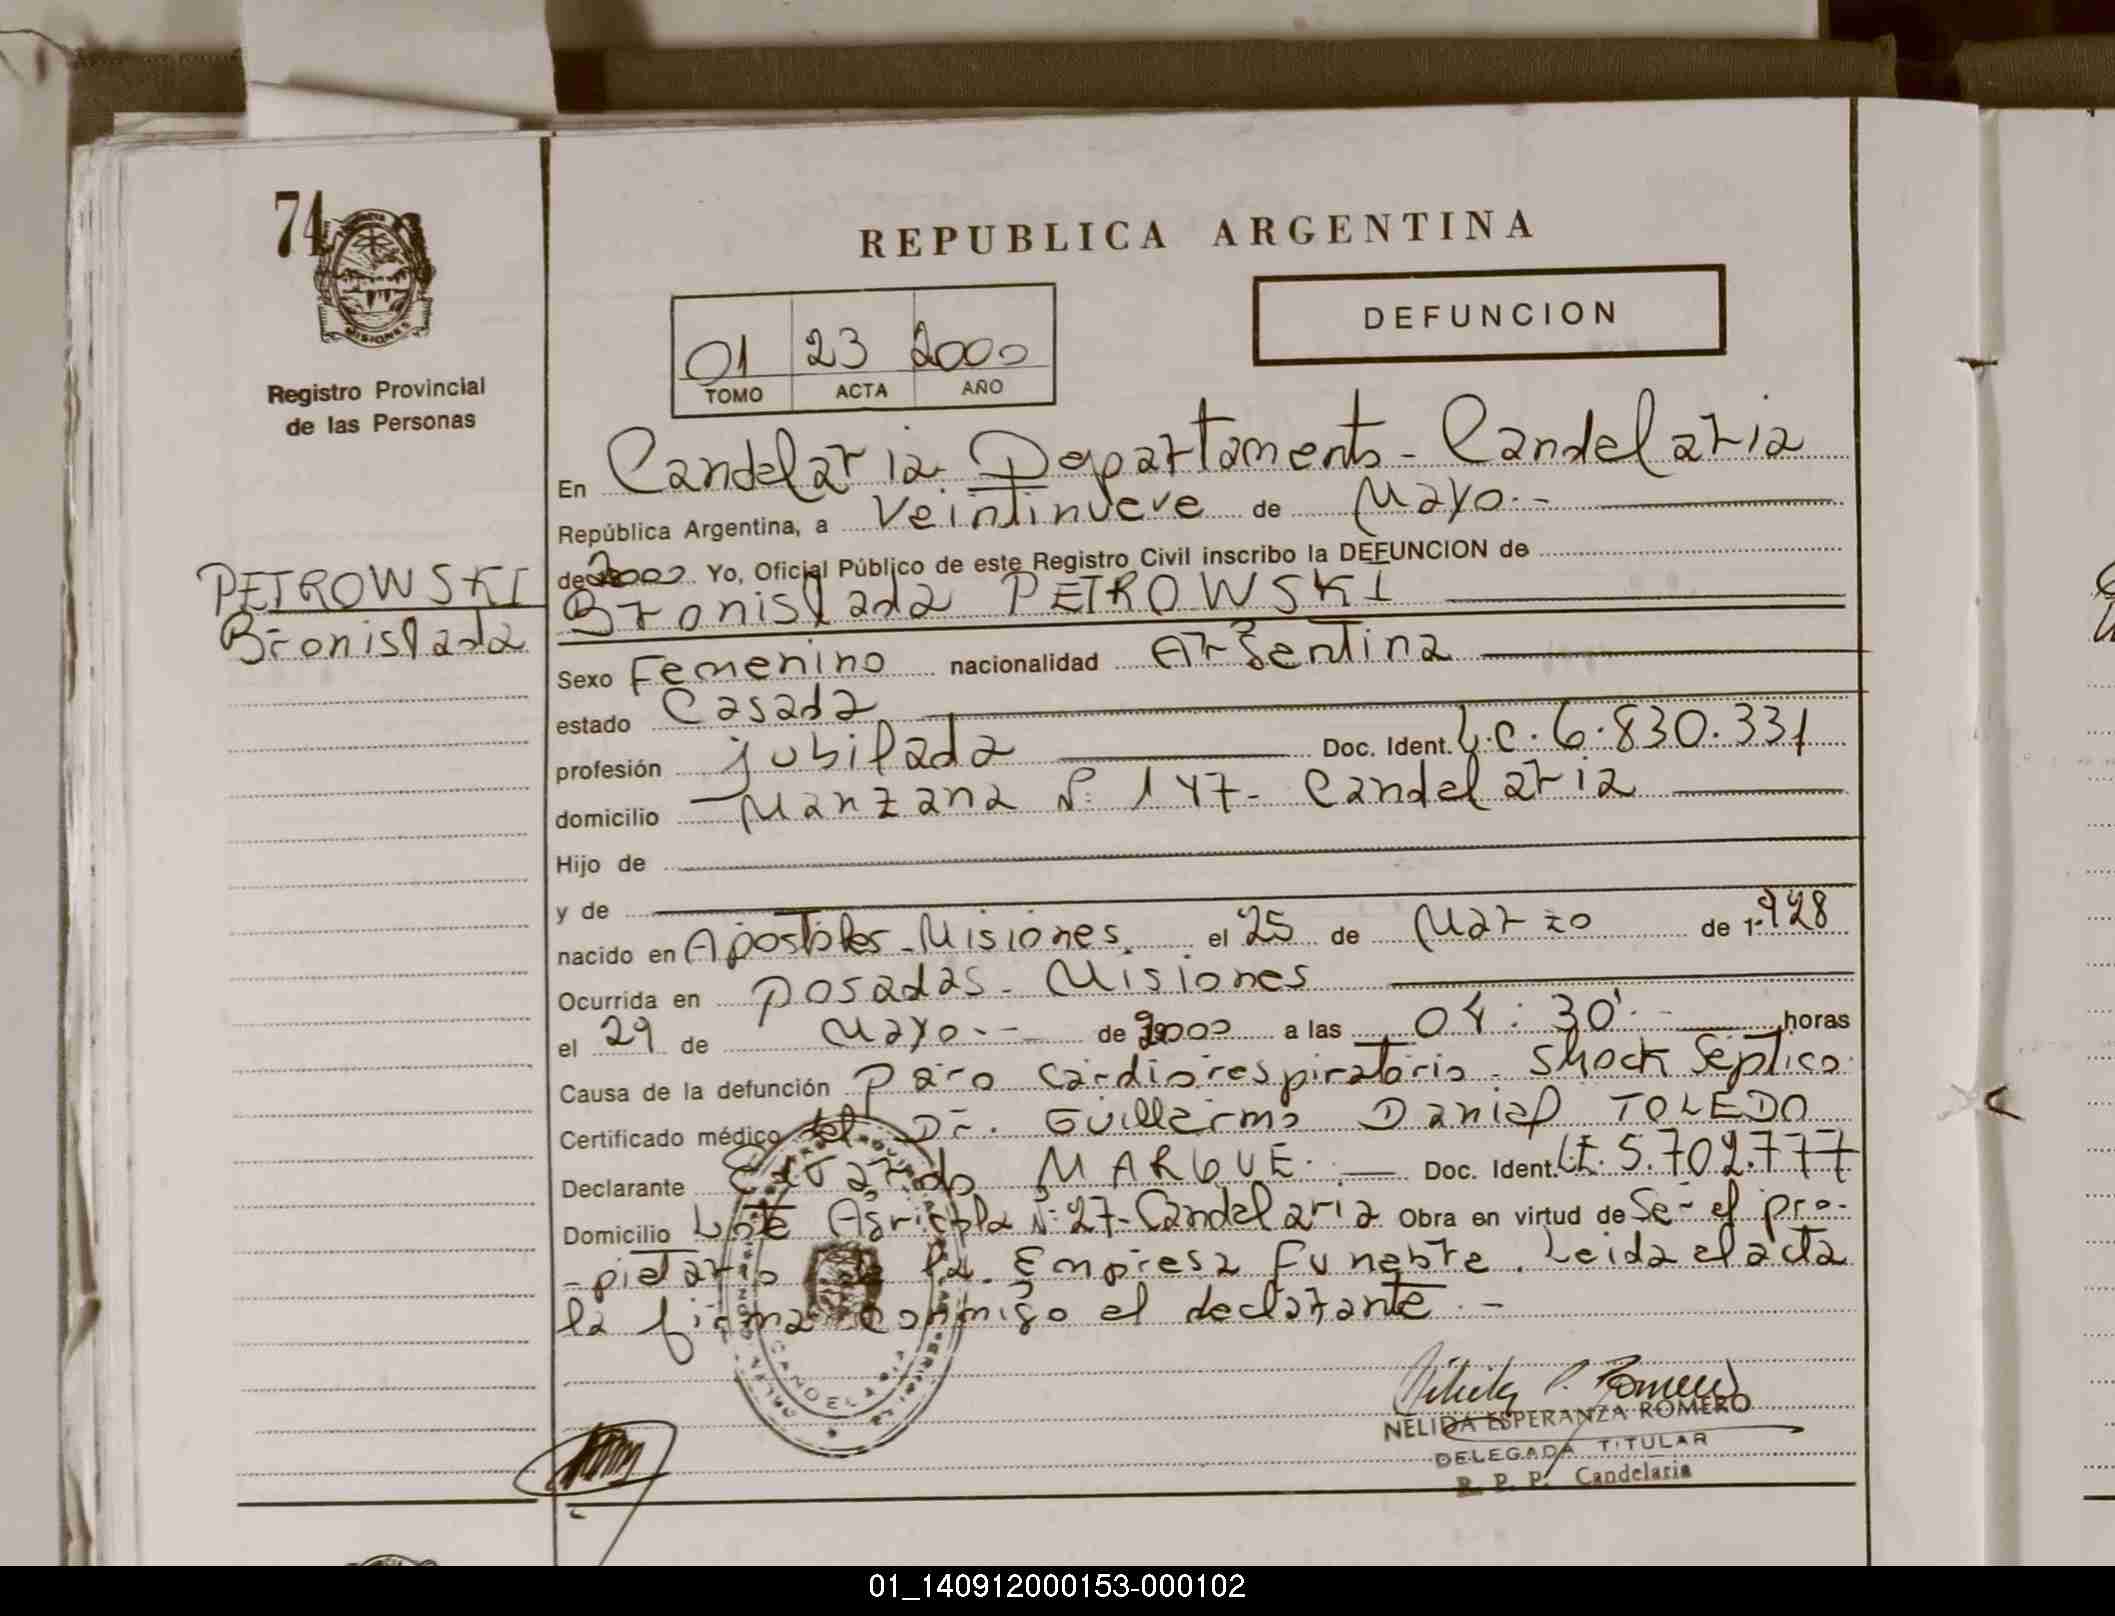 74
MISIONES
Registro Provincial
de las Personas
PETROWSKI
Bronislada
REPUBLICA ARGENTINA
01 23 2000
TOMO ACTA AÑO
DEFUNCION
En Candelaria Departamento - Candelaria
República Argentina, a Veintinueve de Mayo.-
de 2000 Yo, Oficial Público de este Registro Civil inscribo la DEFUNCION de
Bronislada PETROWSKI
Sexo Femenino nacionalidad Argentina
estado Casada
profesión jubilada Doc. Ident. L.C. 6.830.331
domicilio Manzana Nº 147- Candelaria
Hijo de
y de
nacido en Apostoles - Misiones el 25 de Marzo de 1.928
Ocurrida en Posadas - Misiones
el 29 de Mayo.-- de 2000 a las 04:30'.- horas
Causa de la defunción Paro Cardiorespiratorio - Shock Septico
Certificado médico del Dr. Guillermo Daniel TOLEDO
Declarante Eduardo MARQUE.- Doc. Ident. L.E. 5.702.777
Domicilio Lote Agricola Nº 27- Candelaria Obra en virtud de Ser el pro-
-pietario de la Empresa Funebre. Leida el acta
la firma conmigo el declarante.-
CANDELARIA
NELIDA ESPERANZA ROMERO
DELEGADA TITULAR
R. P. P. Candelaria
01_140912000153-000102